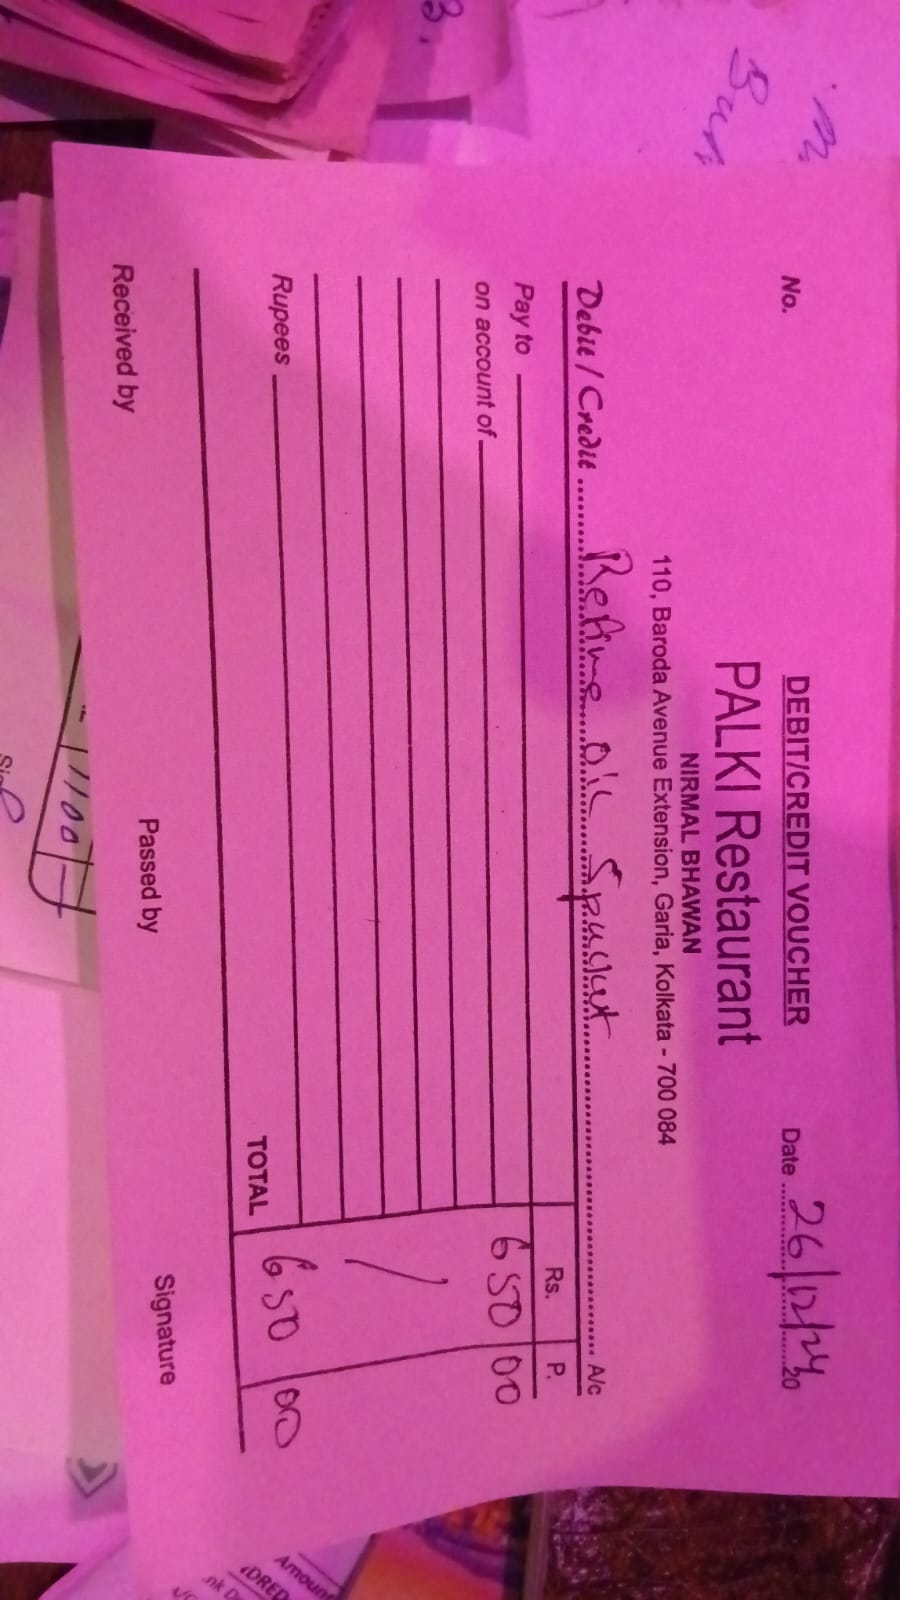 DEBIT/CREDIT VOUCHER
No.
Date 26/12/24 20
PALKI Restaurant
NIRMAL BHAWAN
110, Baroda Avenue Extension, Garia, Kolkata - 700 084
Debit / Credit Refine Oil 5 pacut A/c
Rs. P.
Pay to 650 00
on account of
Rupees
TOTAL 650 00
Received by
Passed by
Signature
1100
Amount